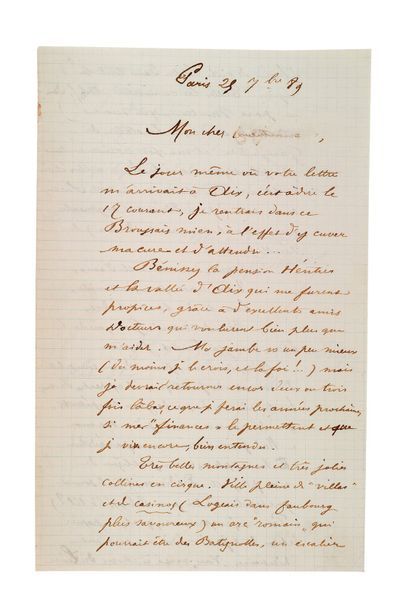 Paris 25 7bre 89
Mon cher
Le jour même où votre lettre
m'arrivait à Aix, c'est à dire le
17 courant, je rentrais dans ce
Broussais mien, à l'effet d'y cuver
ma cure et d'attendre...
Bénissez la pension Héritier
et la vallée d'Aix qui me furent
propices, grâce à d'excellents amis
Docteurs qui voulurent bien plus que
m'aider. Ma jambe va un peu mieux
(du moins je le crois, et la foi !..) mais
je devrai retourner encor deux ou trois
fois là bas, ce que je ferai les années prochaines
si mes "finances" le permettent et que
je vive encore, bien entendu.
Très belles montagnes et très jolies
collines en cirque. Ville pleine de "villas"
et de casinos (Logeais dans faubourg
plus savoureux) un arc "romain" qui
pourrait être des Batignolles, un escalier